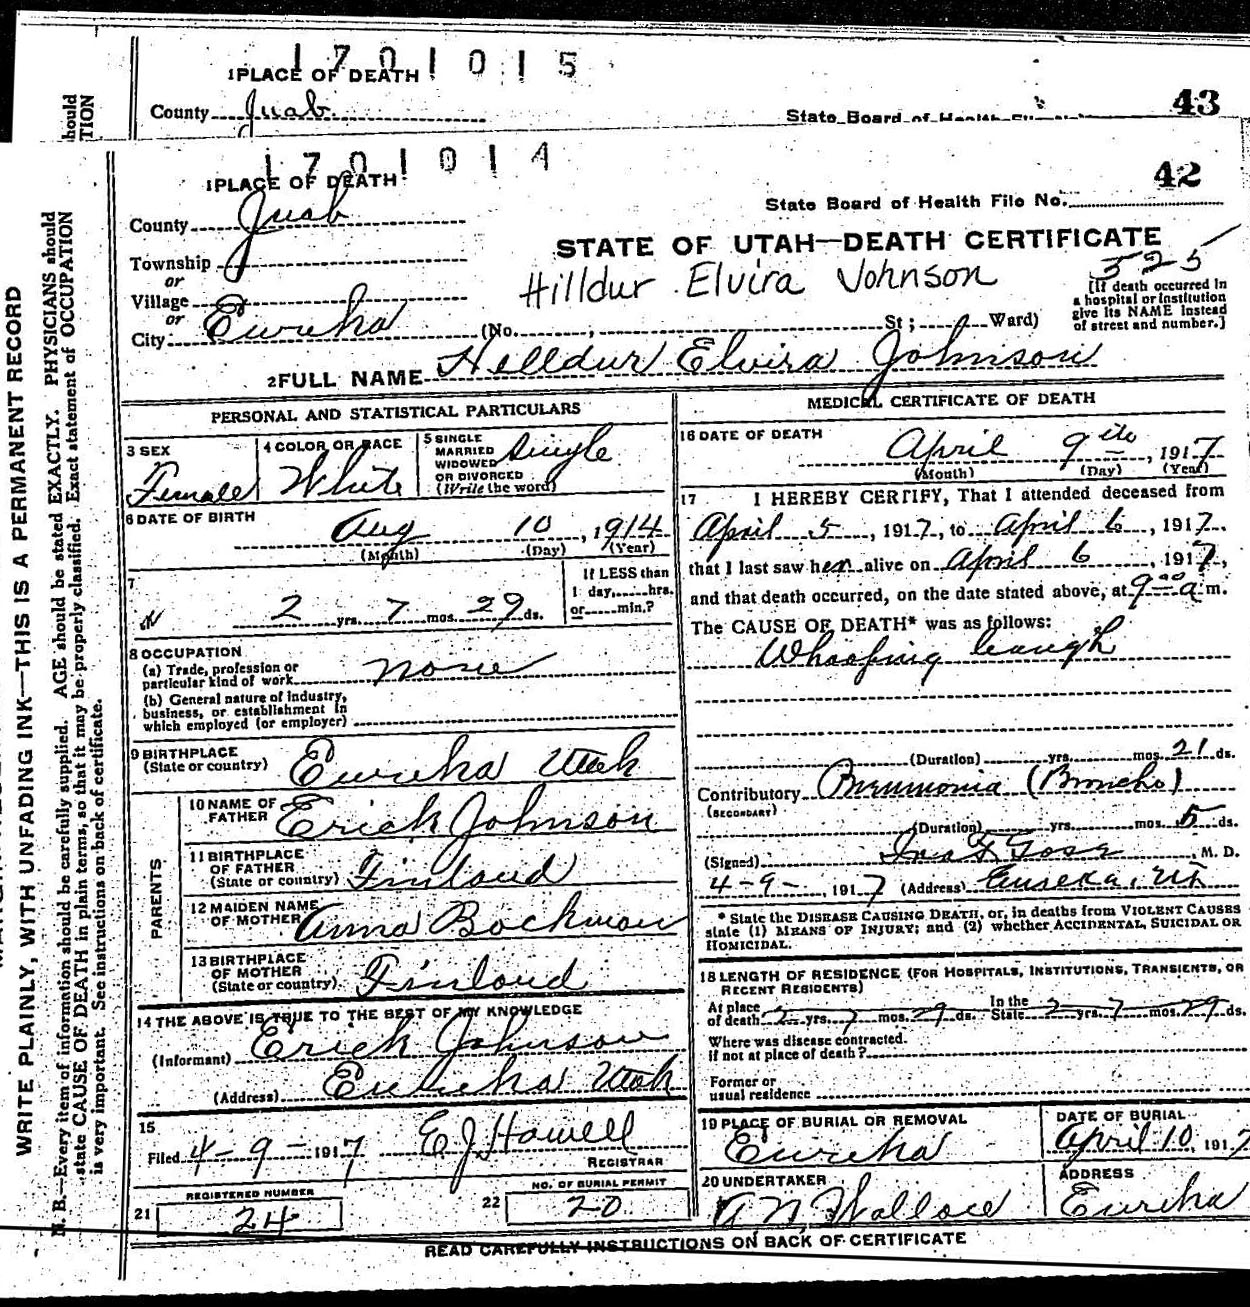 1701015
1 PLACE OF DEATH
County Juab
43
State Board of Health File No.
hould
TION
1701014
1 PLACE OF DEATH
42
State Board of Health File No.
County Juab
STATE OF UTAH—DEATH CERTIFICATE
Township
or
Hilldur Elvira Johnson
525
Village
or
[If death occurred in
a hospital or institution
give its NAME instead
of street and number.]
City Eureka (No. , St; Ward)
2 FULL NAME Hilldur Elvira Johnson
PERSONAL AND STATISTICAL PARTICULARS
3 SEX
Female
4 COLOR OR RACE
White
5 SINGLE
MARRIED
WIDOWED
OR DIVORCED
(Write the word)
Single
6 DATE OF BIRTH
Aug 10, 1914
(Month) (Day) (Year)
7
2 yrs. 7 mos. 29 ds.
If LESS than
1 day, hrs.
or min.?
8 OCCUPATION
(a) Trade, profession or
particular kind of work none
(b) General nature of industry,
business, or establishment in
which employed (or employer)
9 BIRTHPLACE
(State or country) Eureka Utah
PARENTS
10 NAME OF
FATHER Erick Johnson
11 BIRTHPLACE
OF FATHER
(State or country) Finland
12 MAIDEN NAME
OF MOTHER Anna Backman
13 BIRTHPLACE
OF MOTHER
(State or country) Finland
14 THE ABOVE IS TRUE TO THE BEST OF MY KNOWLEDGE
(Informant) Erick Johnson
(Address) Eureka Utah
15
Filed 4-9-1917 E J Howell
REGISTRAR
21 REGISTERED NUMBER
24
22 NO. OF BURIAL PERMIT
20
MEDICAL CERTIFICATE OF DEATH
16 DATE OF DEATH
April 9, 1917
(Month) (Day) (Year)
17 I HEREBY CERTIFY, That I attended deceased from
April 5, 1917, to April 6, 1917,
that I last saw her alive on April 6, 1917,
and that death occurred, on the date stated above, at 9 00 a m.
The CAUSE OF DEATH* was as follows:
Whooping Cough
(Duration) yrs. mos. 21 ds.
Contributory Pneumonia (Broncho)
(SECONDARY)
(Duration) yrs. mos. 5 ds.
(Signed) M. D.
4-9-, 1917 (Address) Eureka, Ut
* State the DISEASE CAUSING DEATH, or, in deaths from VIOLENT CAUSES
state (1) MEANS OF INJURY; and (2) whether ACCIDENTAL, SUICIDAL OR
HOMICIDAL.
18 LENGTH OF RESIDENCE (FOR HOSPITALS, INSTITUTIONS, TRANSIENTS, OR
RECENT RESIDENTS)
At place
of death 2 yrs. 7 mos. 29 ds. In the
State 2 yrs. 7 mos. 29 ds.
Where was disease contracted.
if not at place of death?
Former or
usual residence
19 PLACE OF BURIAL OR REMOVAL
Eureka
DATE OF BURIAL
April 10, 1917
20 UNDERTAKER
A N Wallace
ADDRESS
Eureka
READ CAREFULLY INSTRUCTIONS ON BACK OF CERTIFICATE
WRITE PLAINLY, WITH UNFADING INK—THIS IS A PERMANENT RECORD
N. B.—Every item of information should be carefully supplied. AGE should be stated EXACTLY. PHYSICIANS should
state CAUSE OF DEATH in plain terms, so that it may be properly classified. Exact statement of OCCUPATION
is very important. See instructions on back of certificate.